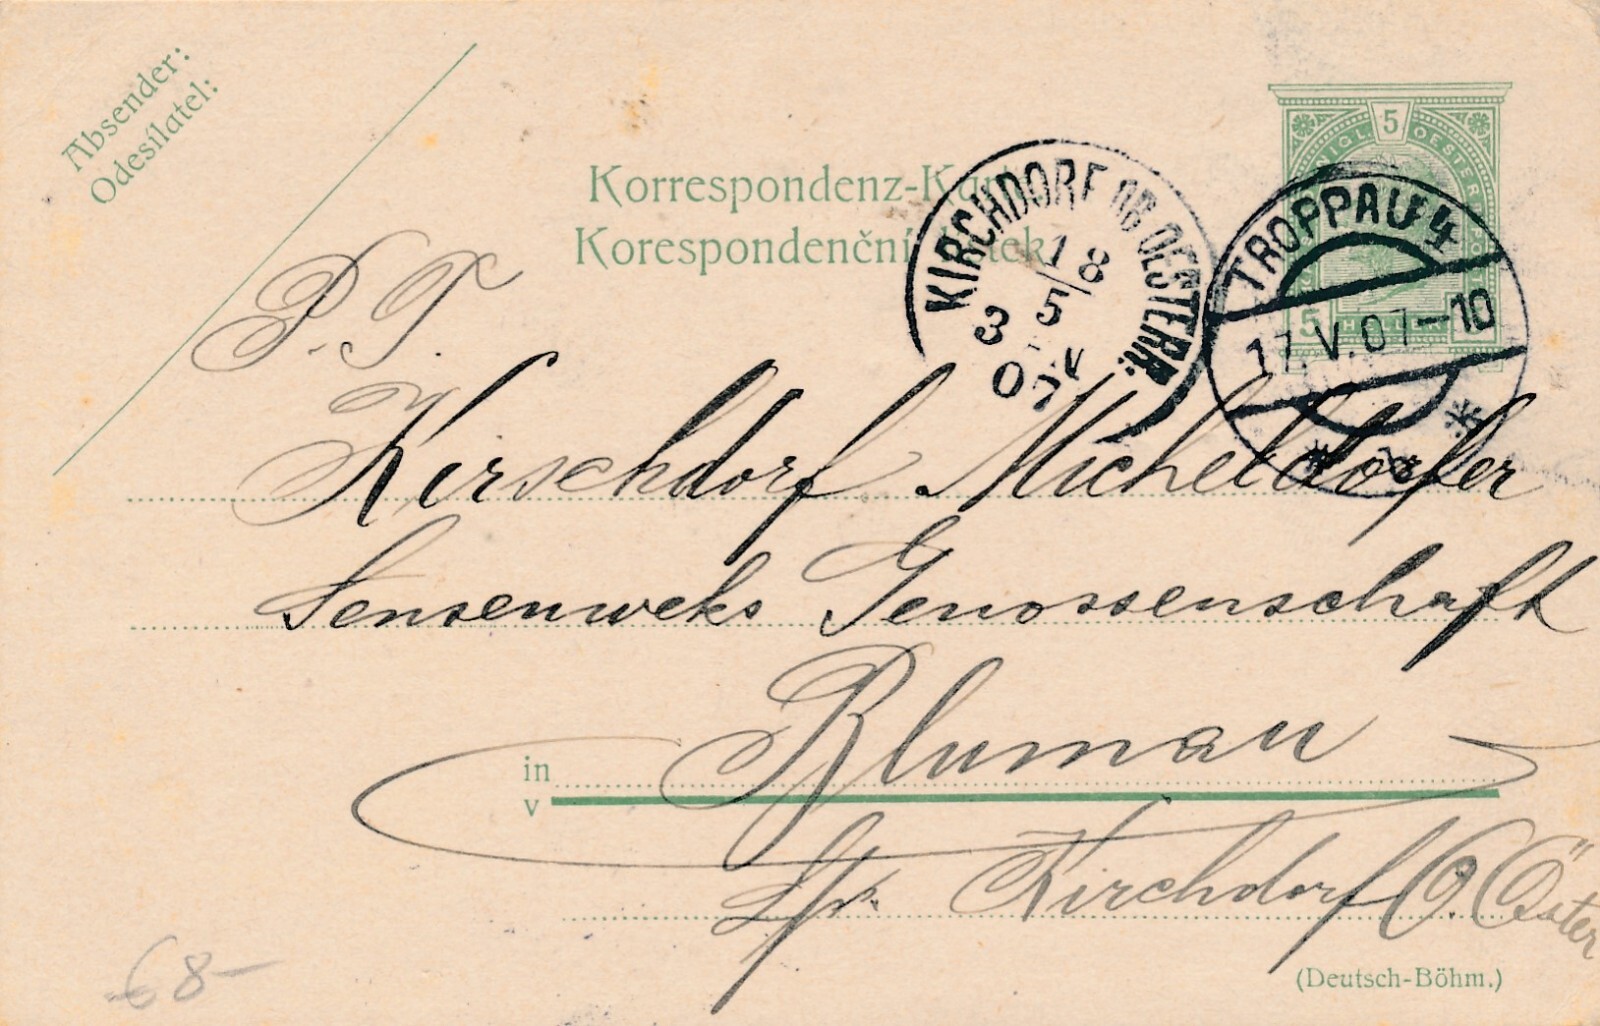 Absender:
Odesílatel:
Korrespondenz-Kar
Korespondenční lístek
5
5 HELLER
KIRCHDORF OB. OESTERR.
18
5
3
07
TROPPAU 4
17.V.07-10
P. T.
Kirschdorf Micheldorfer
Sensenweks Genossenschaft
in
v
Blumau
Kirchdorf O. Öster
(Deutsch-Böhm.)
€ 8-